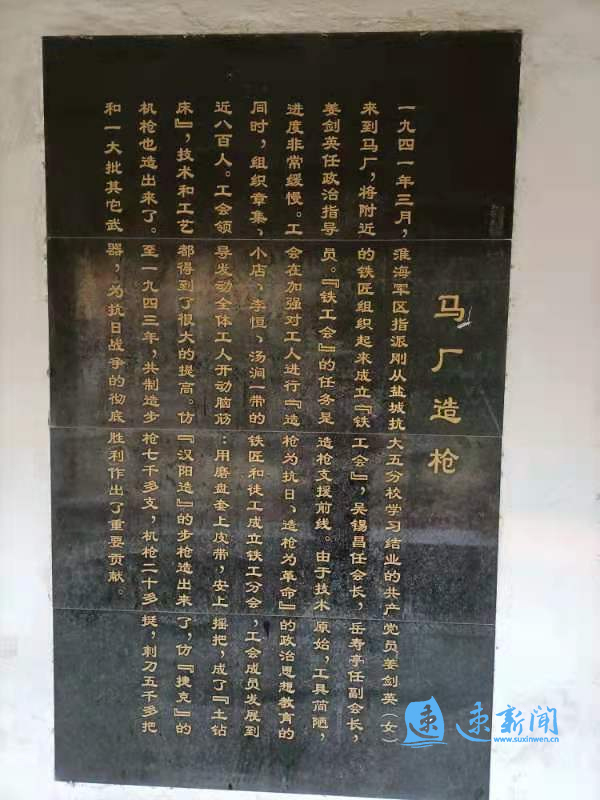 马厂造枪
一九四一年三月，淮海军区指派刚从盐城抗大五分校学习结业的共产党员姜剑英（女）
来到马厂，将附近的铁匠组织起来成立『铁工会』，吴锡昌任会长，岳寿亭任副会长，
姜剑英任政治指导员。『铁工会』的任务是造枪支援前线。由于技术原始，工具简陋，
进度非常缓慢。工会在加强对工人进行『造枪为抗日、造枪为革命』的政治思想教育的
同时，组织章集、小店、李恒、汤涧一带的铁匠和徒工成立铁工分会，工会成员发展到
近八百人。工会领导发动全体工人开动脑筋：用磨盘套上皮带，安上摇把，成了『土钻
床』，技术和工艺都得到了很大的提高。仿『汉阳造』的步枪造出来了，仿『捷克』的
机枪也造出来了。至一九四三年，共制造步枪七千多支，机枪二十多挺，刺刀五千多把
和一大批其它武器，为抗日战争的彻底胜利作出了重要贡献。
速新闻
www.suxinwen.cn